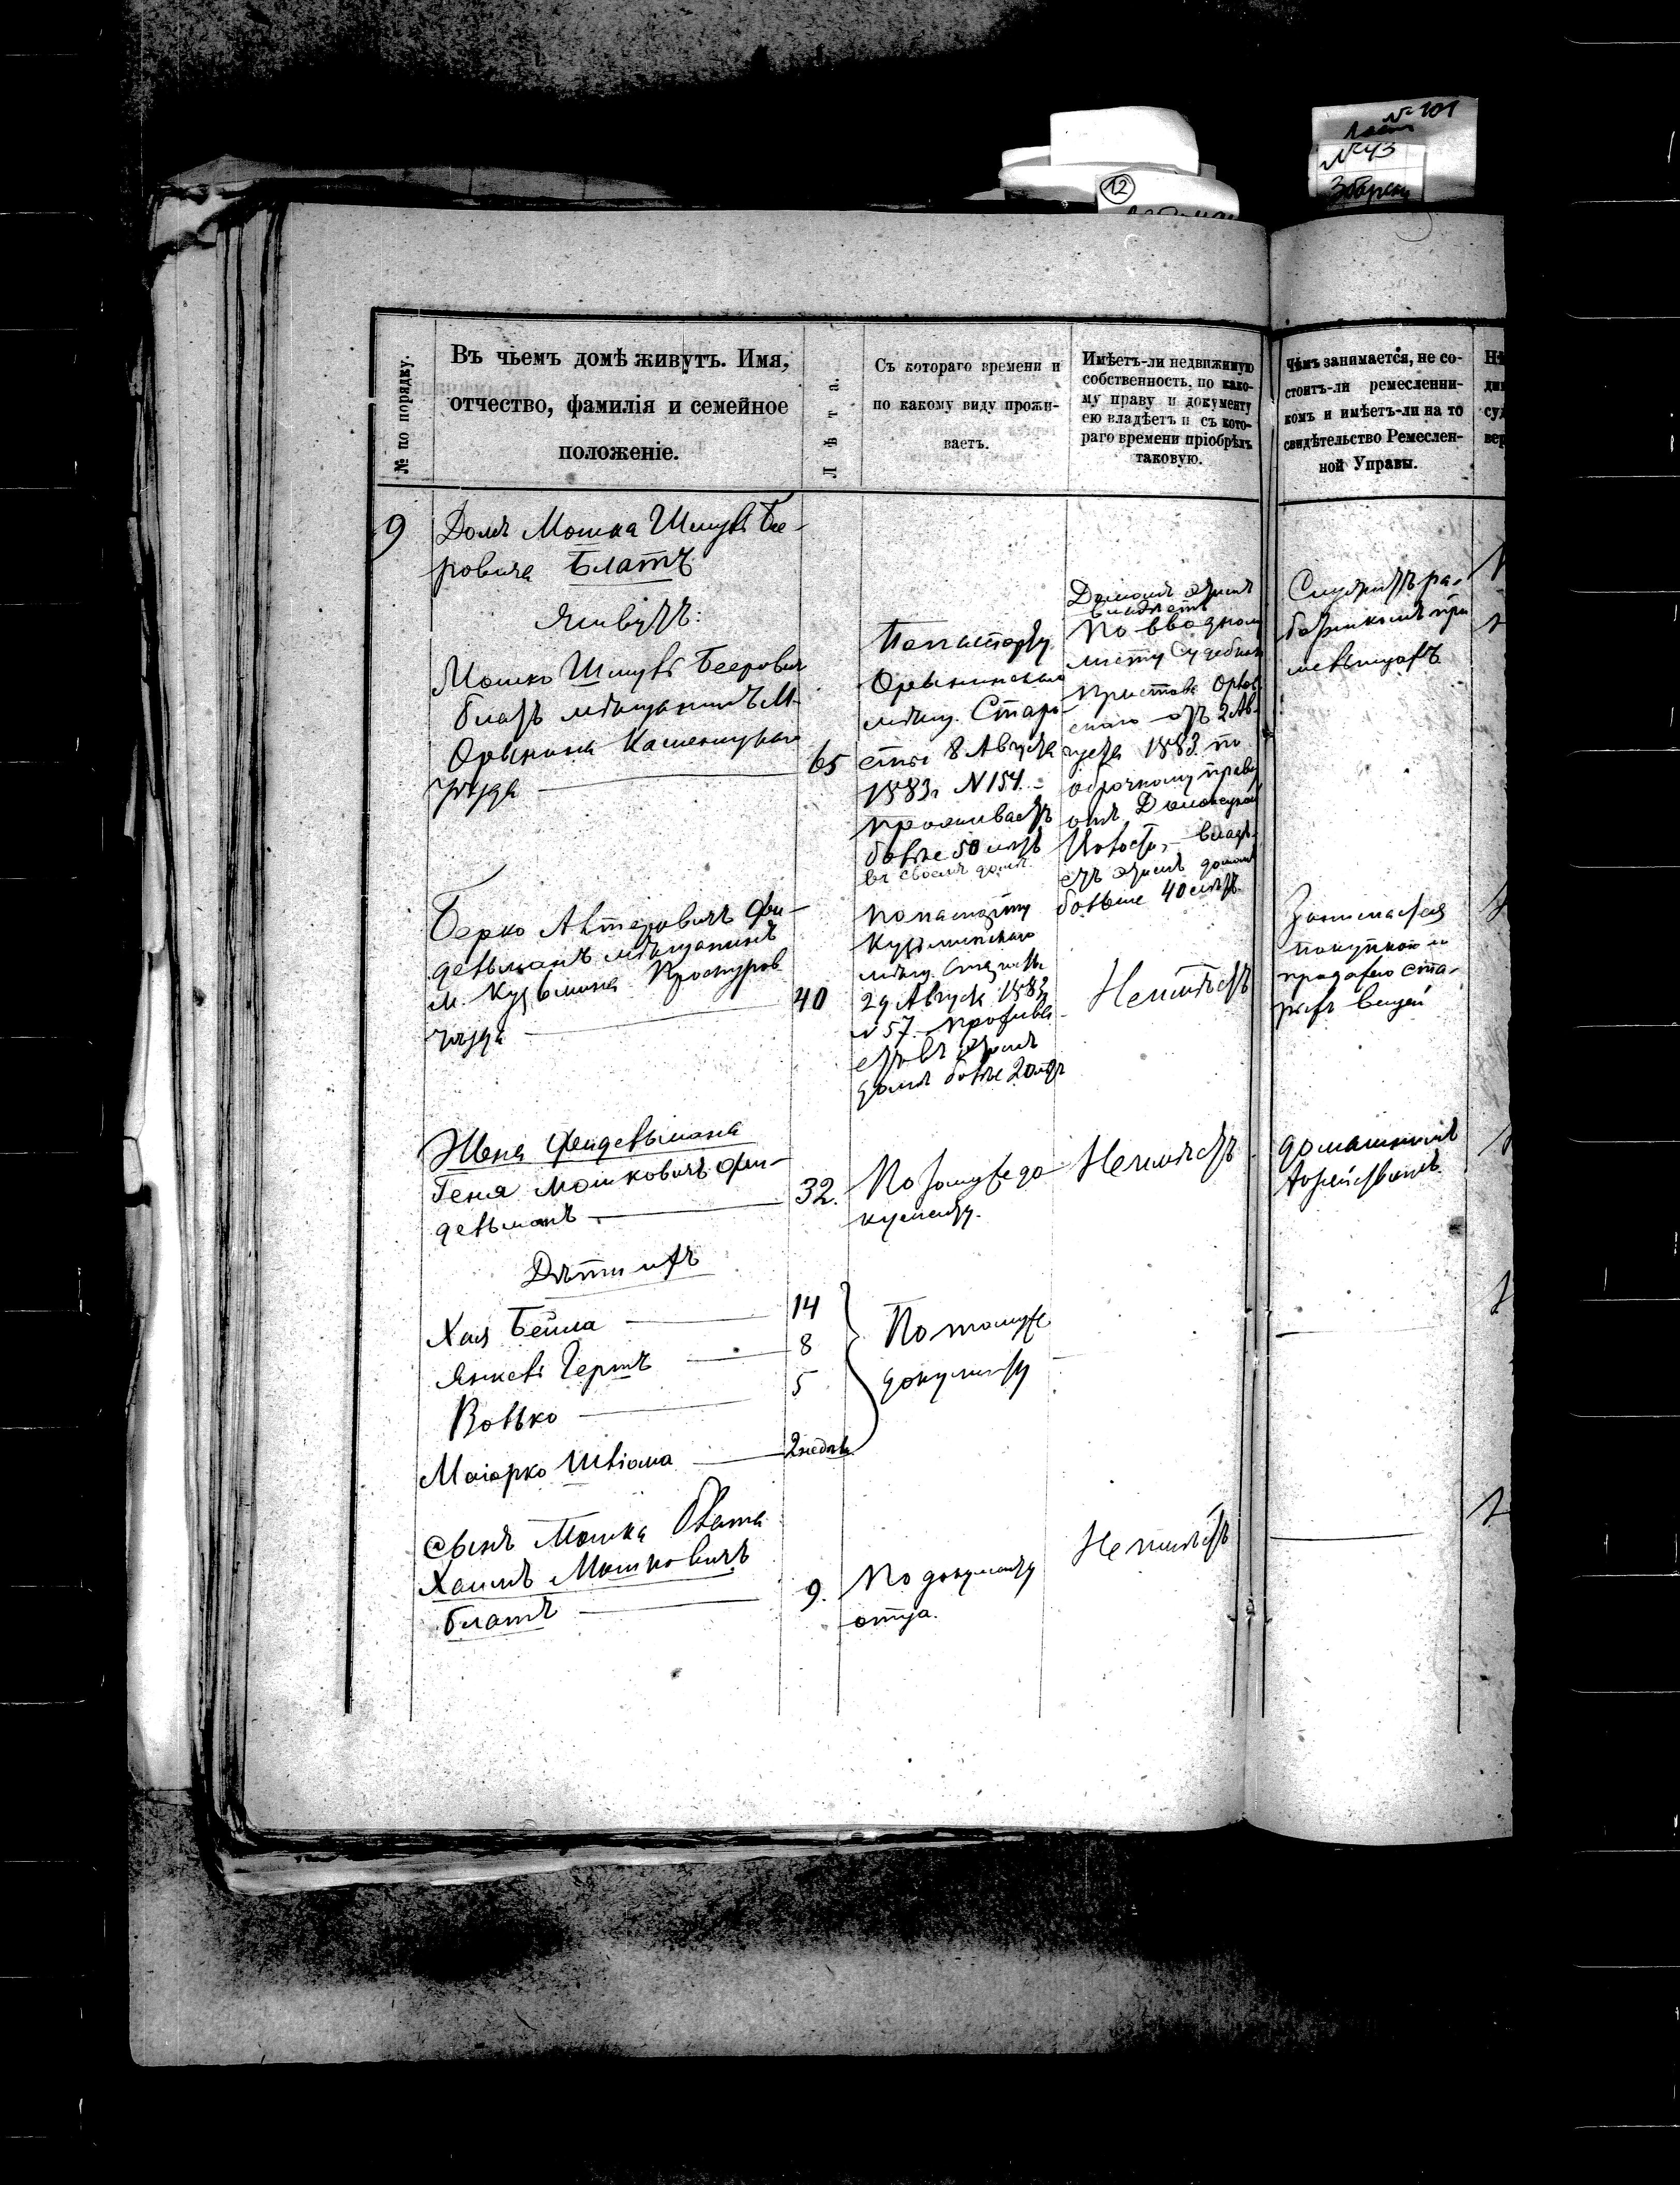 № 101
№ 43
12
№ по порядку.
Въ чьемъ домѣ живутъ. Имя,
отчество, фамилія и семейное
положеніе.
Лѣта.
Съ котораго времени и
по какому виду прожи-
ваетъ.
Имѣетъ-ли недвижимую
собственность, по како-
му праву и документу
ею владѣетъ и съ кото-
раго времени пріобрѣлъ
таковую.
Чѣмъ занимается, не со-
стоитъ-ли ремесленни-
комъ и имѣетъ-ли на то
свидѣтельство Ремеслен-
ной Управы.
9
Домъ Мошка Шмуль Бе-
ровича Блатъ
Живутъ:
Мошко Шмуль Беерович
блатъ мѣщанинъ М.
Орынина Каменецкаго
уѣзда
65
По паспорту
Орынинскаго
мѣщ. Старо-
сты 8 Августа
1883 г N 154.
проживаетъ
более 50 летъ
въ своемъ доме.
Домомъ этимъ
владѣетъ
по вводном
листу Судебнаго
пристава
отъ 2 Ав-
густа 1883 по
оброчному праву
владѣ-
етъ этимъ домомъ
больше 40 летъ.
Служитъ ра-
ботникомъ при
мельницахъ
Берко Авторовичъ Фен-
дельманъ мѣщанинъ
м. Кузьмина Проскуров
уѣзда
40
по паспорту
Кузминскаго
мѣщ. Старосты
29 Август. 1883
N 57. прожива-
етъ въ этомъ
доме более 20 летъ
Неимѣетъ
Занимается
покупкою и
продажею ста-
рыхъ вещей
Жена Фендельмана
Геня Мошковичъ Фен-
дельманъ
32.
По тому же до-
кументу.
Неимѣетъ
домашнимъ
хозяйствомъ.
Дѣти ихъ
Хая Бейла
14
Янкель Гершъ
8
Волько
5
Маіорко Шліома
2 недѣл.
По тому же
документу
сынъ Мошка Блата
Хаимъ Мошковичъ
блатъ
9.
По документу
отца.
Неимѣетъ